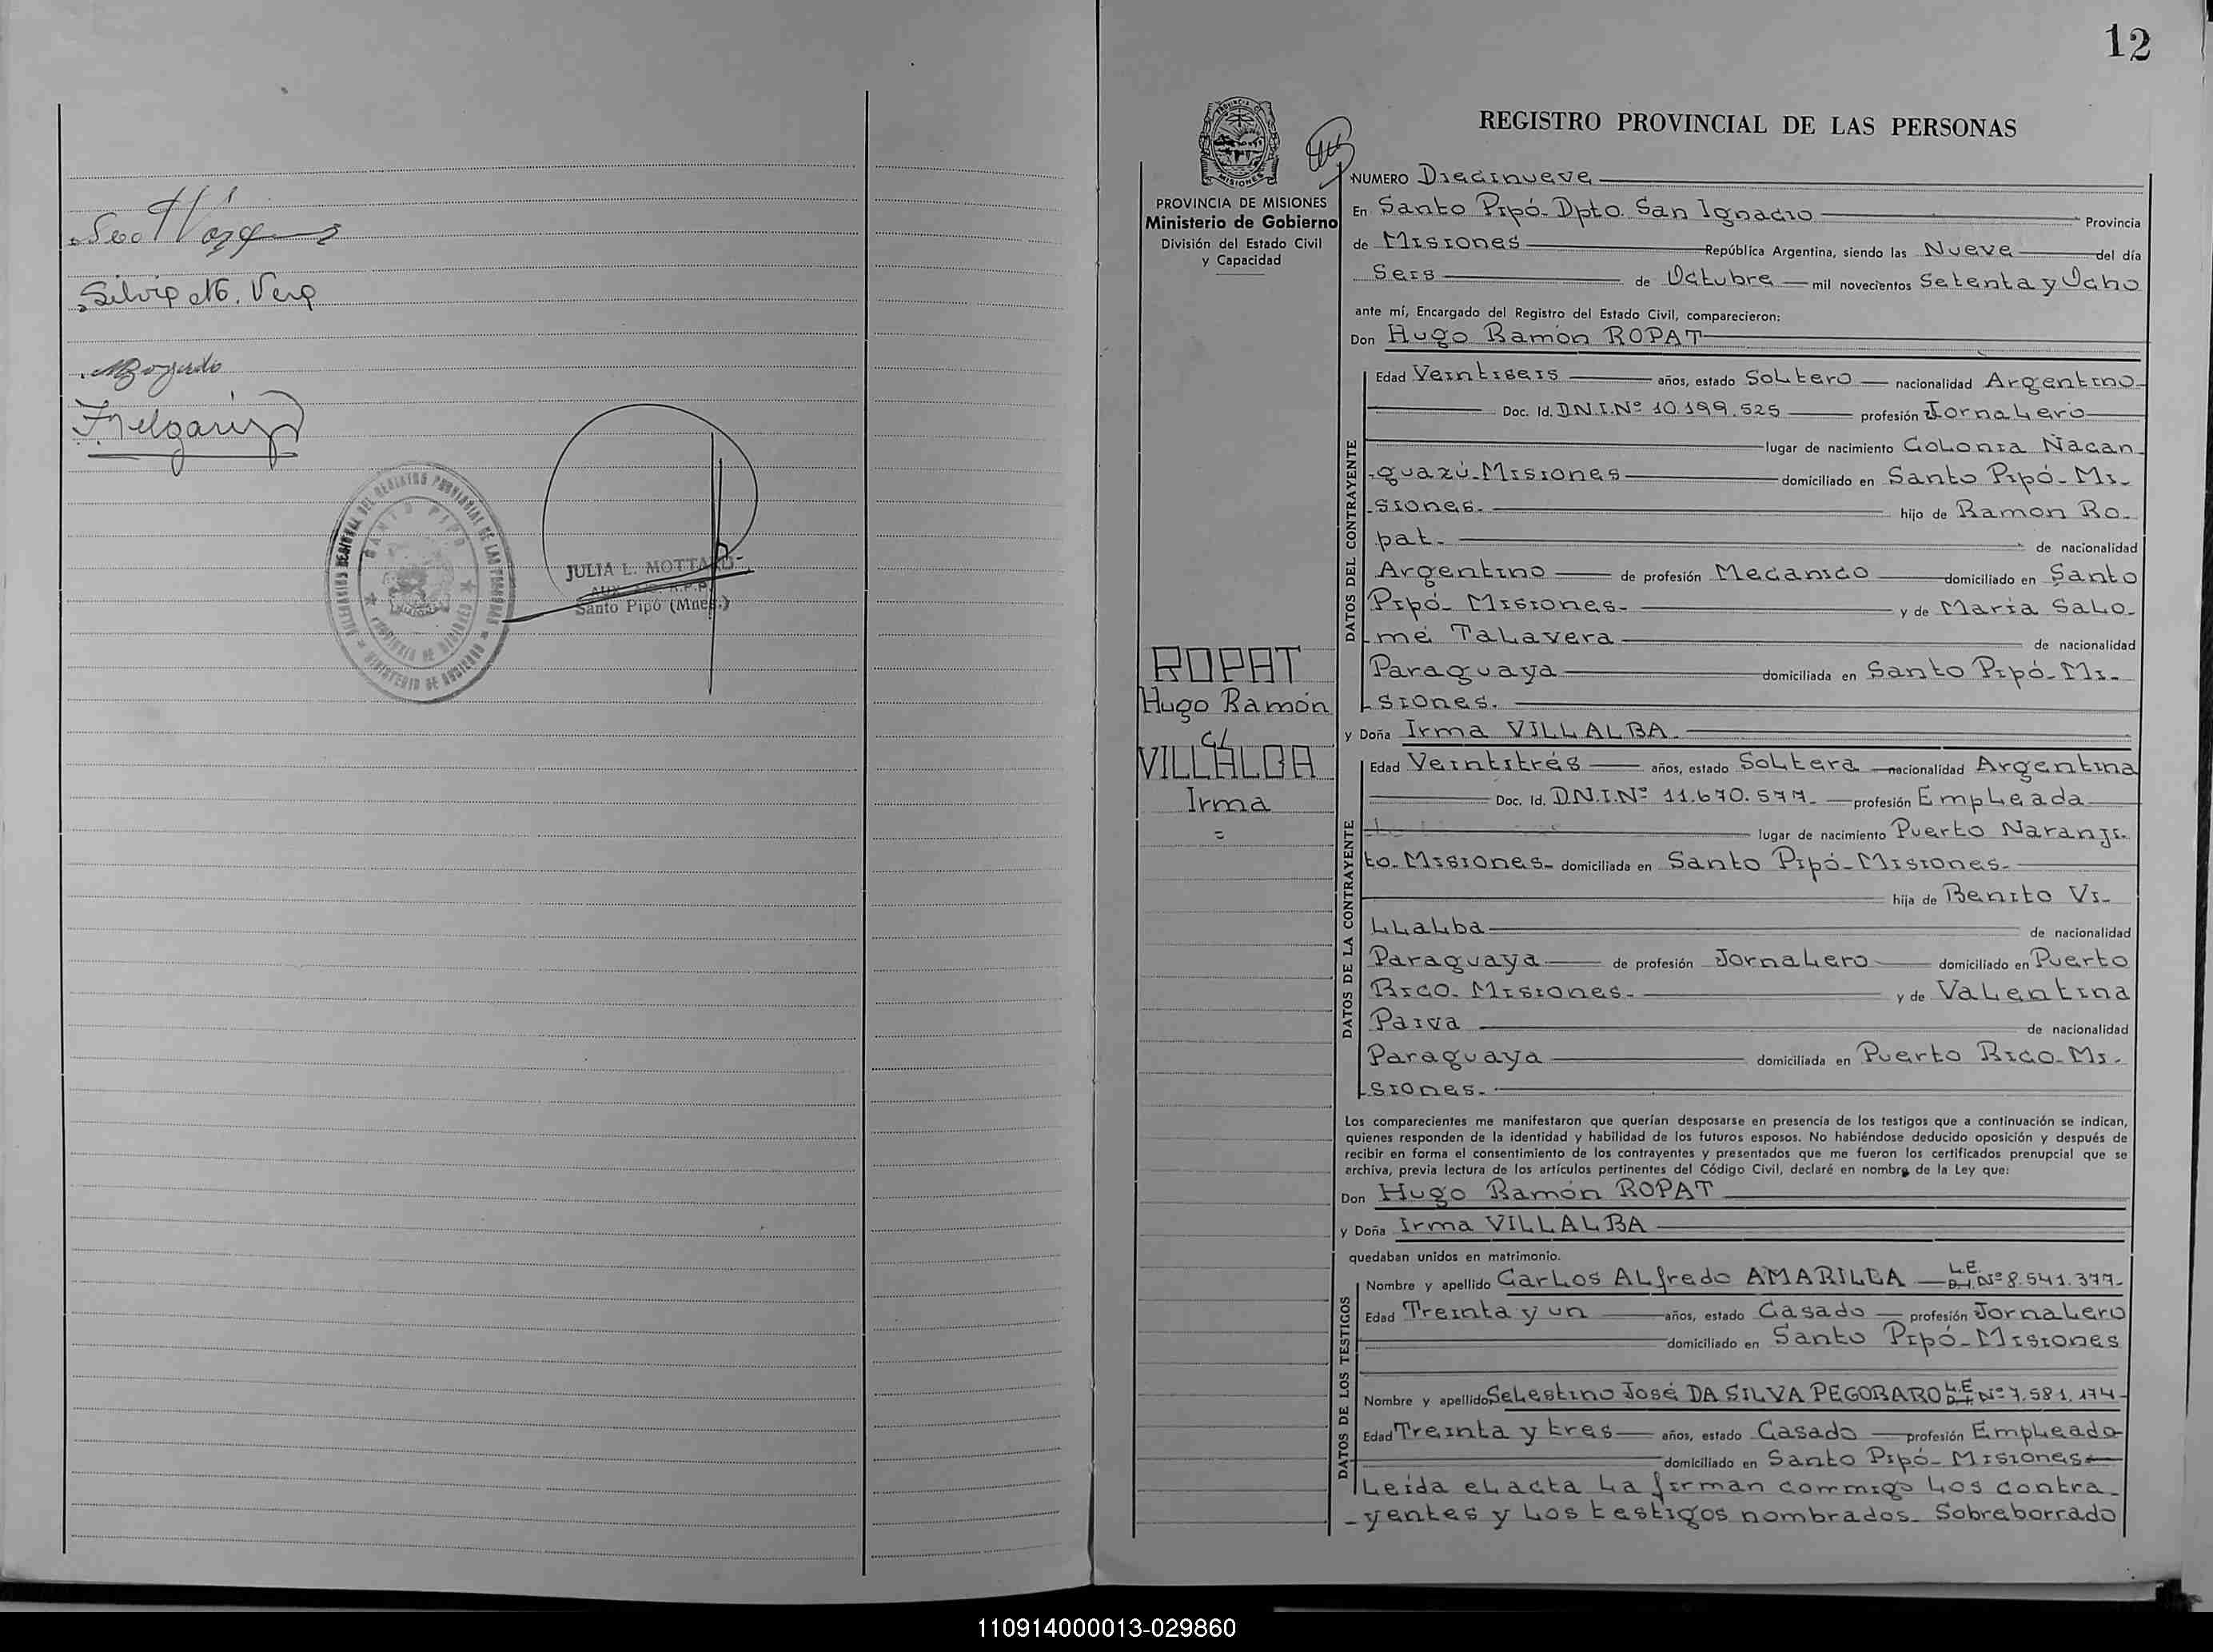 Silvia M. Vera
Bogado
F. Melgarejo
JULIA L. MOTTARD
Santo Pipó (Mnes.)
12
REGISTRO PROVINCIAL DE LAS PERSONAS
PROVINCIA DE MISIONES
Ministerio de Gobierno
División del Estado Civil
y Capacidad
ROPAT
Hugo Ramón
c/
VILLALBA
Irma
=
NUMERO Diecinueve
En Santo Pipó-Dpto. San Ignacio Provincia
de Misiones República Argentina, siendo las Nueve del día
Seis de Octubre mil novecientos Setenta y Ocho
ante mí, Encargado del Registro del Estado Civil, comparecieron:
Don Hugo Ramón ROPAT
DATOS DEL CONTRAYENTE
Edad Veintiseis años, estado Soltero nacionalidad Argentino
Doc. Id. D.N.I.Nº 10.199.525 profesión Jornalero
lugar de nacimiento Colonia Ñacan
-guazú-Misiones domiciliado en Santo Pipó-Mi-
-siones. hijo de Ramon Ro-
pat- de nacionalidad
Argentino de profesión Mecanico domiciliado en Santo
Pipó- Misiones- y de María Salo-
-mé Talavera de nacionalidad
Paraguaya domiciliada en Santo Pipó-Mi-
-siones.
y Doña Irma VILLALBA
DATOS DE LA CONTRAYENTE
Edad Veintitrés años, estado Soltera nacionalidad Argentina
Doc. Id. D.N.I.Nº 11.670.577- profesión Empleada
lugar de nacimiento Puerto Naranji-
to-Misiones- domiciliada en Santo Pipó-Misiones-
hija de Benito Vi-
llalba de nacionalidad
Paraguaya de profesión Jornalero domiciliado en Puerto
Rico- Misiones- y de Valentina
Paiva de nacionalidad
Paraguaya domiciliada en Puerto Rico-Mi-
-siones-
Los comparecientes me manifestaron que querían desposarse en presencia de los testigos que a continuación se indican,
quienes responden de la identidad y habilidad de los futuros esposos. No habiéndose deducido oposición y después de
recibir en forma el consentimiento de los contrayentes y presentados que me fueron los certificados prenupcial que se
archiva, previa lectura de los artículos pertinentes del Código Civil, declaré en nombre de la Ley que:
Don Hugo Ramón ROPAT
y Doña Irma VILLALBA
quedaban unidos en matrimonio.
DATOS DE LOS TESTIGOS
Nombre y apellido Carlos Alfredo AMARILLA L.E. Nº 8.541.377-
Edad Treinta y un años, estado Casado profesión Jornalero
domiciliado en Santo Pipó-Misiones
Nombre y apellido Selestino José DA SILVA PEGORARO L.E. Nº 7.581.174-
Edad Treinta y tres años, estado Casado profesión Empleado
domiciliado en Santo Pipó- Misiones
Leída el acta la firman conmigo los contra-
-yentes y los testigos nombrados- Sobreborrado
110914000013-029860